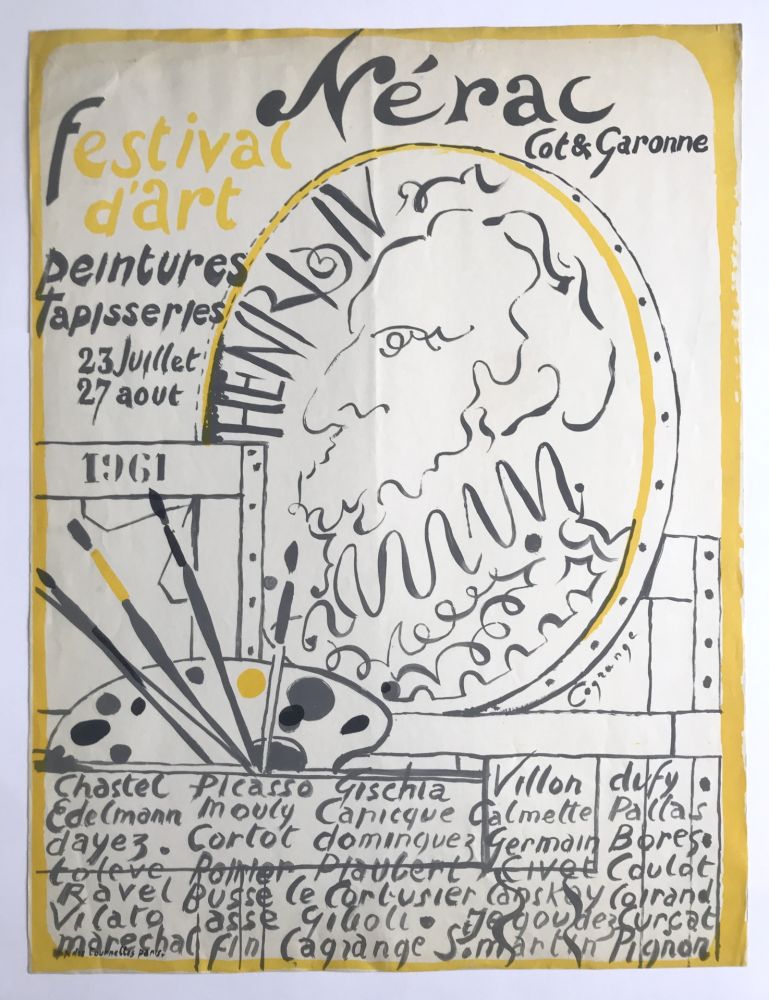 Nérac
Lot & Garonne
festival
d'art
peintures
tapisseries
23 Juillet
27 aout
HENRI IV
1961
Lagrange
Chastel Picasso Gischia Villon dufy
Edelmann Mouly Capicque Calmette Pallas
dayez. Cortot dominguez Germain Bores
Plaubert Civet Coulot
Ravel Busse Le Corbusier Lanskoy Coirand
Vilato asse Gilioli Lurçat
marechal fin Lagrange S.martin Pignon
tournelles paris.